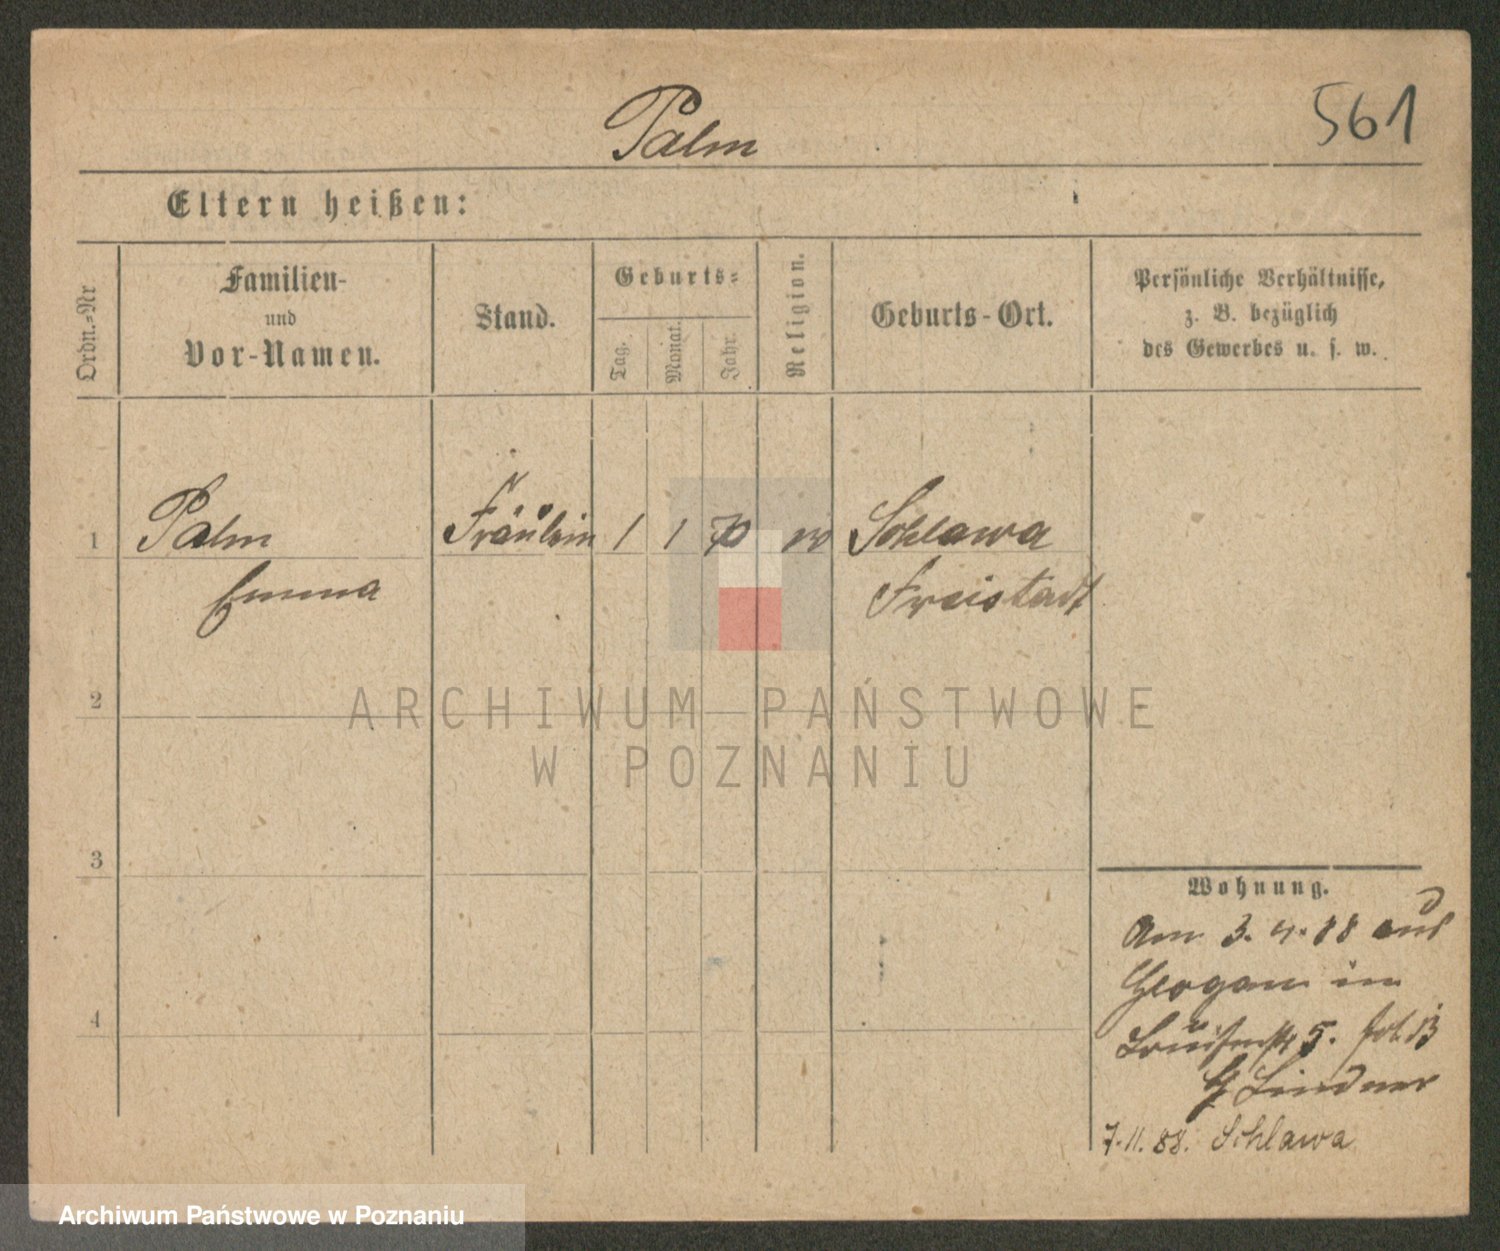 Palm
561
Eltern heißen:
Ordn.-Nr
Familien-
und
Vor-Namen.
Stand.
Geburts-
Tag.
Monat.
Jahr.
Religion.
Geburts-Ort.
Persönliche Verhältnisse,
z. B. bezüglich
des Gewerbes u. s. w.
1 Palm Fräulein 1 1 70 Schlawa
Emma Freistadt
2
3
4
Wohnung.
Am 3. 4. 88 aus
Glogau in
Louisenstr 5.
Lindner
7.11.88. Schlawa
ARCHIWUM PAŃSTWOWE
W POZNANIU
Archiwum Państwowe w Poznaniu